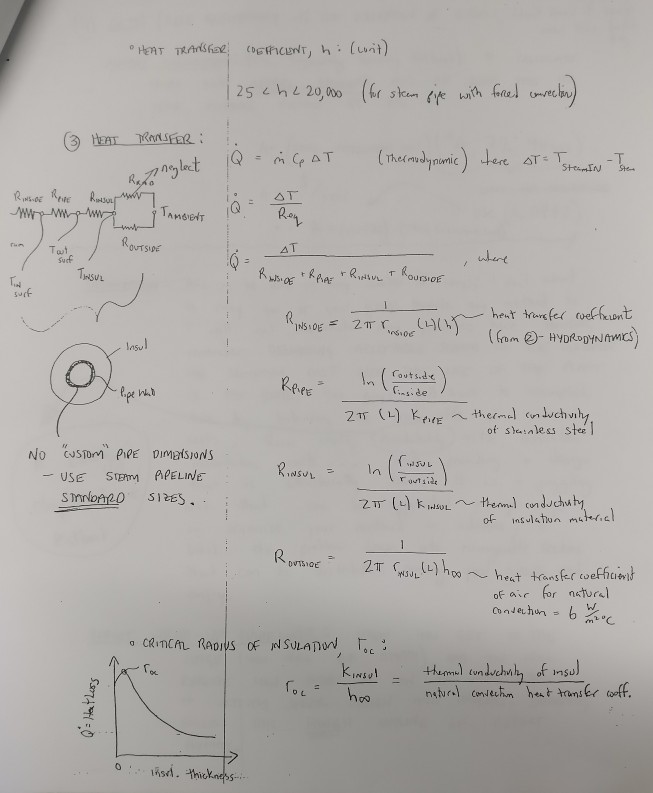 ° HEAT TRANSFER COEFFICIENT, h : (unit)
25 < h < 20,000 (for steam pipe with forced convection)
③ HEAT TRANSFER :
Q̇ = ṁ Cp ΔT (Thermodynamic) where ΔT = T STEAM IN - T Steam
RRAD neglect
RINSIDE RPIPE RINSUL
TAMBIENT
ROUTSIDE
Tout surf
TINSUL
TIN surf
Q̇ = ΔT / Req
Q̇ = ΔT / RINSIDE + RPIPE + RINSUL + ROUTSIDE , where
RINSIDE = 1 / 2π rinside (L)(h) ~ heat transfer coefficient
(from ②- HYDRODYNAMICS)
Insul
Pipe Wall
RPIPE = ln (routside / rinside) / 2π (L) KPIPE ~ thermal conductivity
of stainless steel
NO "CUSTOM" PIPE DIMENSIONS
- USE STEAM PIPELINE
STANDARD SIZES.
RINSUL = ln (rINSUL / routside) / 2π (L) KINSUL ~ thermal conductivity
of insulation material
ROUTSIDE = 1 / 2π rINSUL (L) h∞ ~ heat transfer coefficient
of air for natural
convection = 6 W/m²°C
° CRITICAL RADIUS OF INSULATION, roc :
roc = KINSUL / h∞ = thermal conductivity of insul / natural convection heat transfer coeff.
roc
Q̇ = Heat Loss
0 insul. thickness